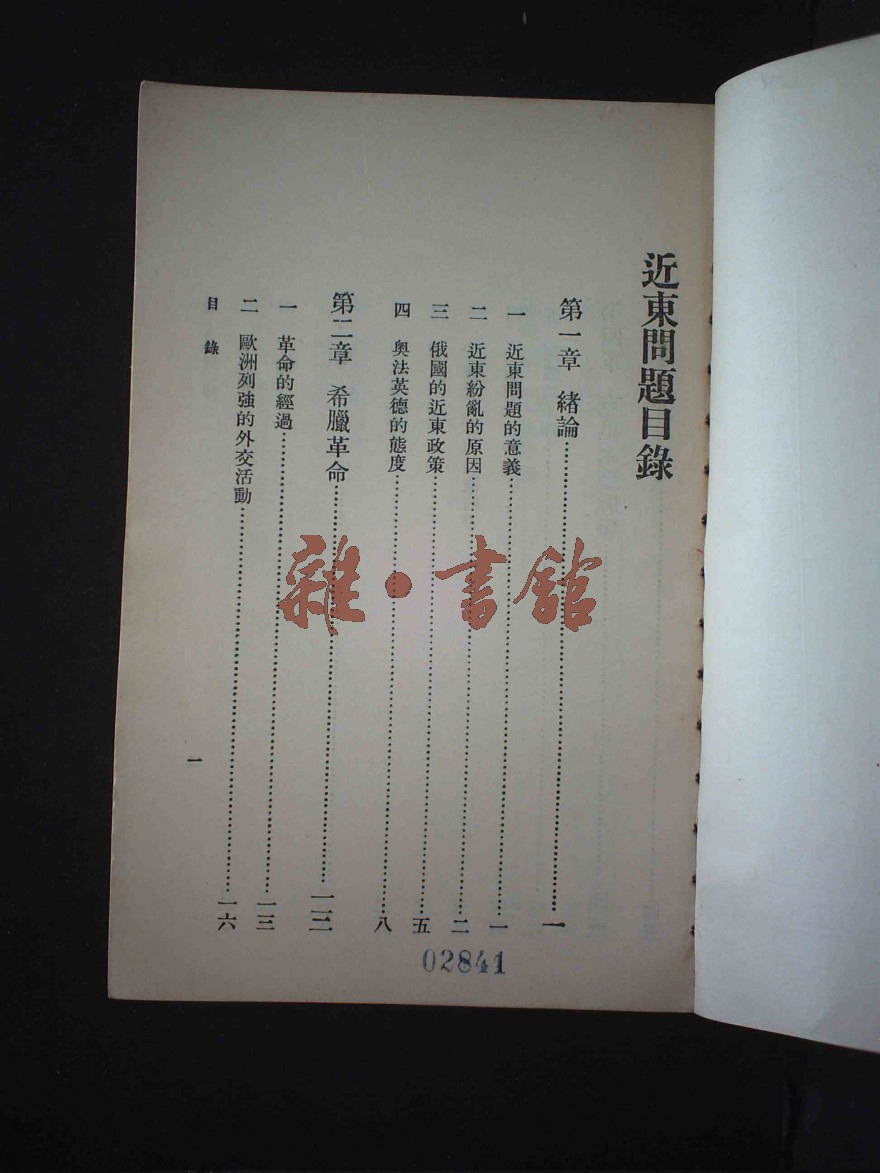 近東問題目錄
第一章 緒論……一
一 近東問題的意義……一
二 近東紛亂的原因……二
三 俄國的近東政策……五
四 奧法英德的態度……八
第二章 希臘革命……一三
一 革命的經過……一三
二 歐洲列強的外交活動……一六
目錄
一
02841
雜·書館